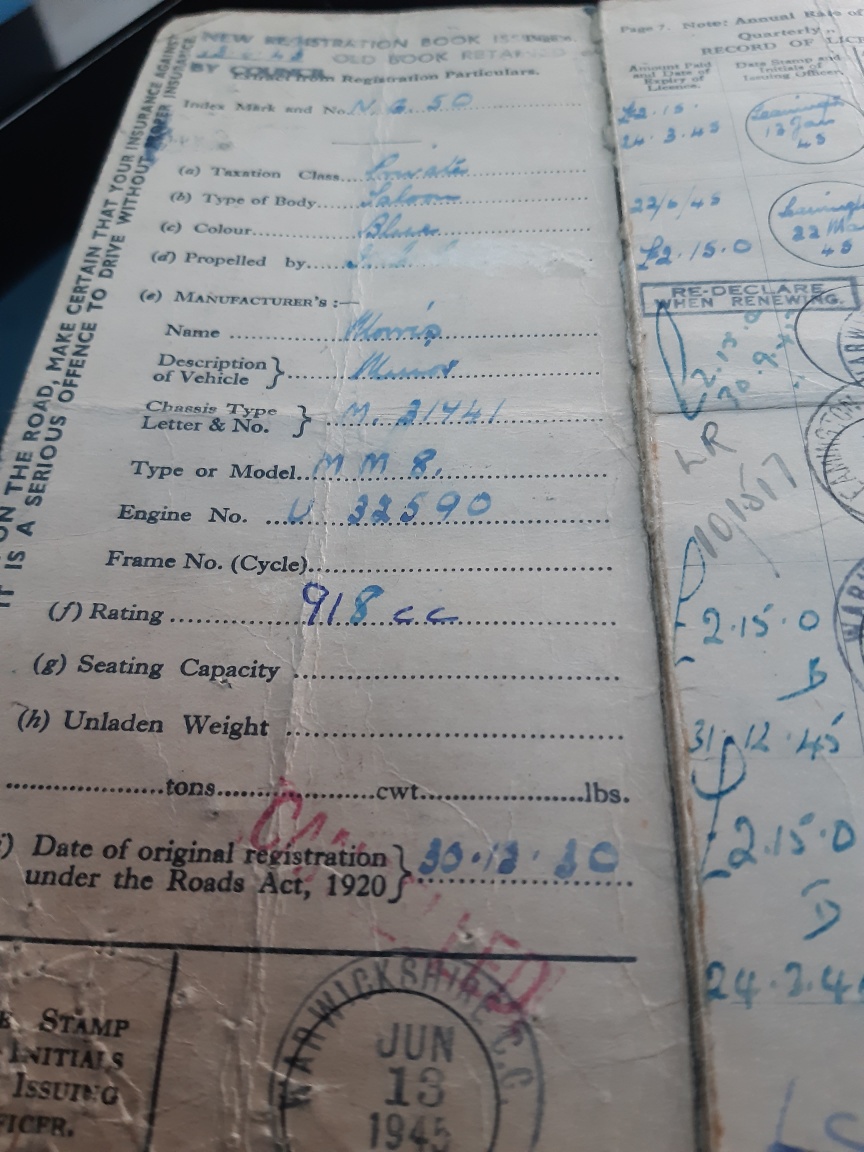 NEW REGISTRATION BOOK ISSUED.
OLD BOOK RETAINED
BY COUNCIL
Extract from Registration Particulars.
Index Mark and No. N G 50
(a) Taxation Class....Private
(b) Type of Body....Saloon
(c) Colour....Black
(d) Propelled by....
(e) MANUFACTURER'S :—
Name ....Morris
Description of Vehicle } ....Minor
Chassis Type Letter & No. } ....M. 31441
Type or Model..M M 8.
Engine No. ...U 32590
Frame No. (Cycle)....
(f) Rating ....918 cc
(g) Seating Capacity ....
(h) Unladen Weight ....
....tons....cwt....lbs.
) Date of original registration
under the Roads Act, 1920 } 30.12.30
CANCELLED
STAMP
INITIALS
ISSUING
FICER.
WARWICKSHIRE C.C.
JUN
13
1945
ON THE ROAD, MAKE CERTAIN THAT YOUR INSURANCE AGAINST
IT IS A SERIOUS OFFENCE TO DRIVE WITHOUT PROPER INSURANCE.
Page 7. Note: Annual Rate of
Quarterly "
RECORD OF LICE
Amount Paid and Date of Expiry of Licence.
Date Stamp and Initials of Issuing Officer.
£2.15.
24.3.45
Leamington
13 Jan
45
22/6/45
£2.15.0
Leamington
22 Ma
45
RE-DECLARE
WHEN RENEWING.
2.15.0
30.9.
LR
101517
LEAMINGTON
WARW
2.15.0
31.12.45
WAR
£2.15.0
24.3.4